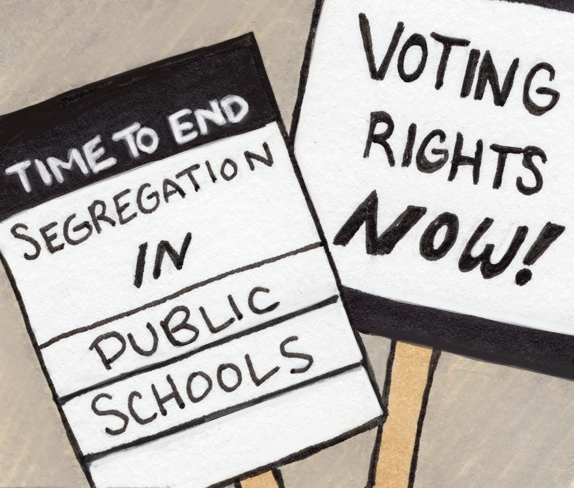 TIME TO END
SEGREGATION
IN
PUBLIC
SCHOOLS
VOTING
RIGHTS
NOW!